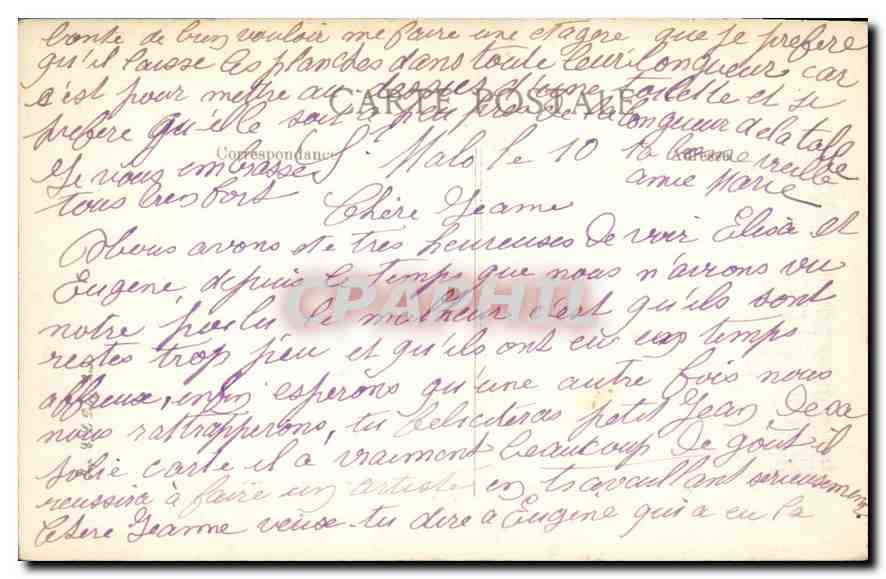 S. Malo le 10
Chère Jeanne
Nous avons ete très heureuses de voir Elisa et
Eugene, depuis le temps que nous n'avions vu
notre poilu le malheur c'est qu'ils sont
restes trop peu et qu'ils ont eu un temps
affreux, enfin esperons qu'une autre fois nous
nous rattrapperons, tu feliciteras petit Jean de sa
jolie carte il a vraiment beaucoup de goût il
reussira à faire un artiste en travaillant serieusement.
Chere Jeanne veux-tu dire à Eugene qui a eu la
bonte de bien vouloir me faire une etagere que je prefere
qu'il laisse les planches dans toute leur longueur car
c'est pour mettre au dessus d'une toilette et je
prefere qu'elle soit à peu près de la longueur de la table
Je vous embrasse
tous bien fort
vieille
amie Marie
CARTE POSTALE
Correspondance
Adresse
CPAPHIL